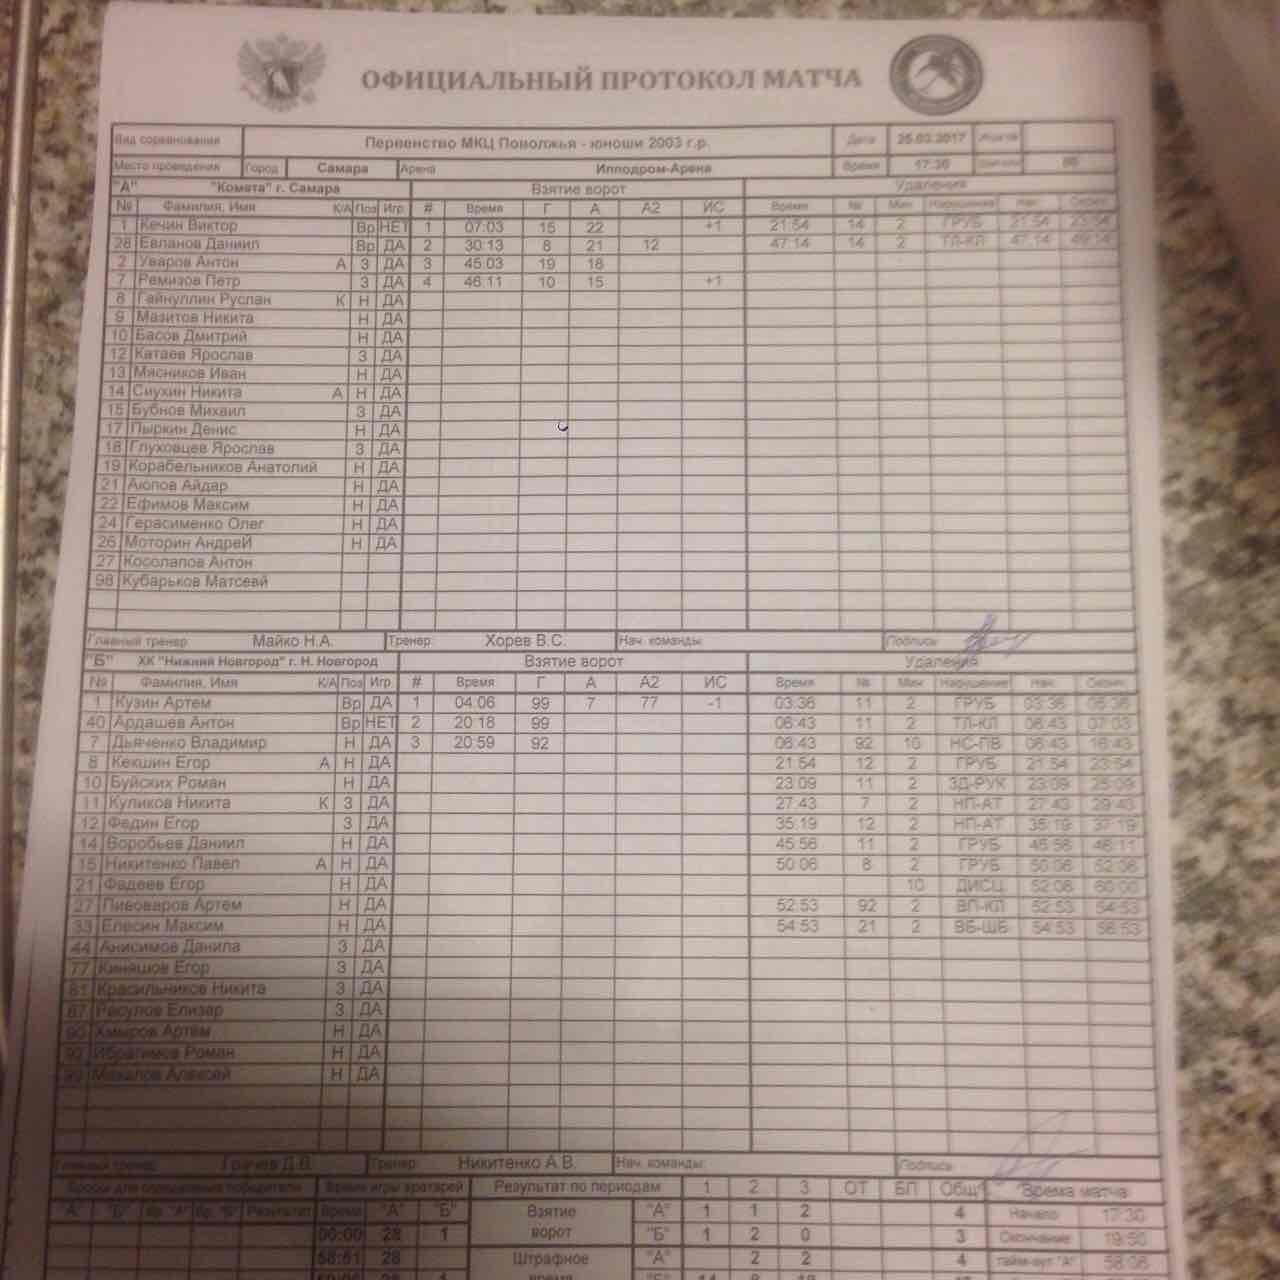 ОФИЦИАЛЬНЫЙ ПРОТОКОЛ МАТЧА
Вид соревнования Первенство МКЦ Поволжья - юноши 2003 г.р. Дата 25.03.2017
Место проведения Город Самара Арена Ипподром-Арена Время 17:30
"А" "Комета" г. Самара Взятие ворот Удаления
№ Фамилия, Имя К/А Поз Игр # Время Г А А2 ИС Время № Мин Нарушение Нач. Оконч.
1 Кечин Виктор Вр НЕТ 1 07:03 15 22 +1 21:54 14 2 ГРУБ 21:54 23:54
28 Евланов Даниил Вр ДА 2 30:13 8 21 12 47:14 14 2 ТЛ-КЛ 47:14 49:14
2 Уваров Антон А З ДА 3 45:03 19 18
7 Ремизов Петр З ДА 4 46:11 10 15 +1
8 Гайнуллин Руслан К Н ДА
9 Мазитов Никита Н ДА
10 Басов Дмитрий Н ДА
12 Катаев Ярослав З ДА
13 Мясников Иван Н ДА
14 Сиухин Никита А Н ДА
15 Бубнов Михаил З ДА
17 Пыркин Денис Н ДА
18 Глуховцев Ярослав З ДА
19 Корабельников Анатолий Н ДА
21 Аюпов Айдар Н ДА
22 Ефимов Максим Н ДА
24 Герасименко Олег Н ДА
26 Моторин Андрей Н ДА
27 Косолапов Антон
98 Кубарьков Матсевй
Главный тренер: Майко Н.А. Тренер: Хорев В.С. Нач. команды: Подпись
"Б" ХК "Нижний Новгород" г. Н. Новгород Взятие ворот Удаления
№ Фамилия, Имя К/А Поз Игр # Время Г А А2 ИС Время № Мин Нарушение Нач. Оконч.
1 Кузин Артем Вр ДА 1 04:06 99 7 77 -1 03:36 11 2 ГРУБ 03:36 05:36
40 Ардашев Антон Вр НЕТ 2 20:18 99 06:43 11 2 ТЛ-КЛ 06:43 07:03
7 Дьяченко Владимир Н ДА 3 20:59 92 06:43 92 10 НС-ПВ 06:43 16:43
8 Кекшин Егор А Н ДА 21:54 12 2 ГРУБ 21:54 23:54
10 Буйских Роман Н ДА 23:09 11 2 ЗД-РУК 23:09 25:09
11 Куликов Никита К З ДА 27:43 7 2 НП-АТ 27:43 29:43
12 Федин Егор З ДА 35:19 12 2 НП-АТ 35:19 37:19
14 Воробьев Даниил Н ДА 45:56 11 2 ГРУБ 45:56 46:11
15 Никитенко Павел А Н ДА 50:06 8 2 ГРУБ 50:06 52:06
21 Фадеев Егор Н ДА 10 ДИСЦ 52:06 60:00
27 Пивоваров Артем Н ДА 52:53 92 2 ВП-КЛ 52:53 54:53
33 Елесин Максим Н ДА 54:53 21 2 ВБ-ШБ 54:53 56:53
44 Анисимов Данила З ДА
77 Киняшов Егор З ДА
81 Красильников Никита З ДА
87 Расулов Елизар З ДА
90 Хмыров Артём Н ДА
92 Ибрагимов Роман Н ДА
99 Алексей Н ДА
Главный тренер: Грачев Д.В. Тренер: Никитенко А.В. Нач. команды: Подпись
Броски для определения победителя Время игры вратарей Результат по периодам 1 2 3 ОТ БП Общ Время матча
"А" "Б" Вр. "А" Вр. "Б" Результат Время "А" "Б" Взятие ворот "А" 1 1 2 4 Начало 17:30
00:00 28 1 "Б" 1 2 0 3 Окончание 19:50
58:51 28 Штрафное время "А" 2 2 4 тайм-аут "А" 58:06
28 1 "Б"